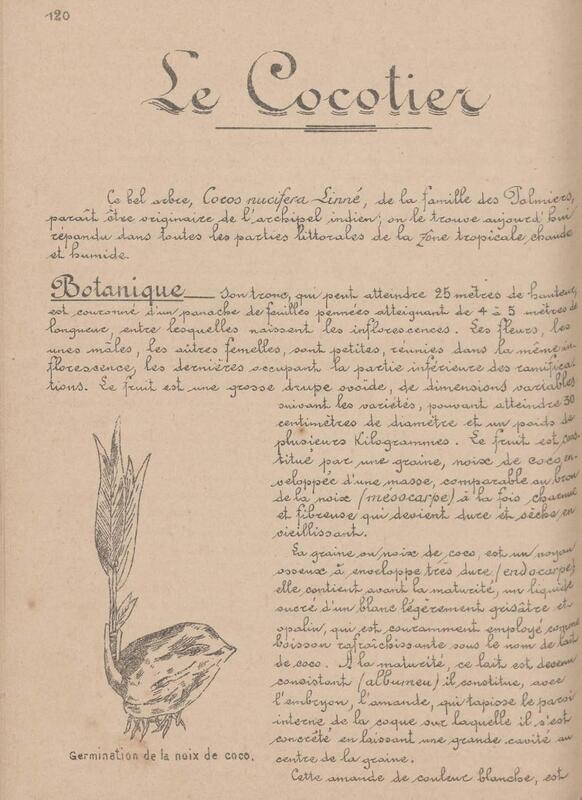 120
Le Cocotier
Ce bel arbre, Cocos nucifera Linné, de la famille des Palmiers,
paraît être originaire de l'archipel indien; on le trouve aujourd'hui
répandu dans toutes les parties littorales de la zone tropicale, chaude
et humide.
Botanique — Son tronc, qui peut atteindre 25 mètres de hauteur,
est couronné d'un panache de feuilles pennées atteignant de 4 à 5 mètres de
longueur, entre lesquelles naissent les inflorescences. Les fleurs, les
unes mâles, les autres femelles, sont petites, réunies dans la même in-
florescence, les dernières occupant la partie inférieure des ramifica-
tions. Le fruit est une grosse drupe ovoïde, de dimensions variables
suivant les variétés, pouvant atteindre 30
centimètres de diamètre et un poids de
plusieurs Kilogrammes. Le fruit est cons-
titué par une graine, noix de coco en-
veloppée d'une masse, comparable au brou
de la noix (mesocarpe) à la fois charnue
et fibreuse qui devient dure et sèche en
vieillissant.
La graine ou noix de coco, est un noyau
osseux à enveloppe très dure (endocarpe)
elle contient avant la maturité, un liquide
sucré d'un blanc légèrement grisâtre et
opalin, qui est couramment employé comme
boisson rafraîchissante sous le nom de lait
de coco. A la maturité, ce lait est devenu
consistant (albumeu) il constitue, avec
l'embryon, l'amande, qui tapisse le paroi
interne de la coque sur laquelle il s'est
concrété en laissant une grande cavité au
centre de la graine.
Cette amande de couleur blanche, est
Germination de la noix de coco.